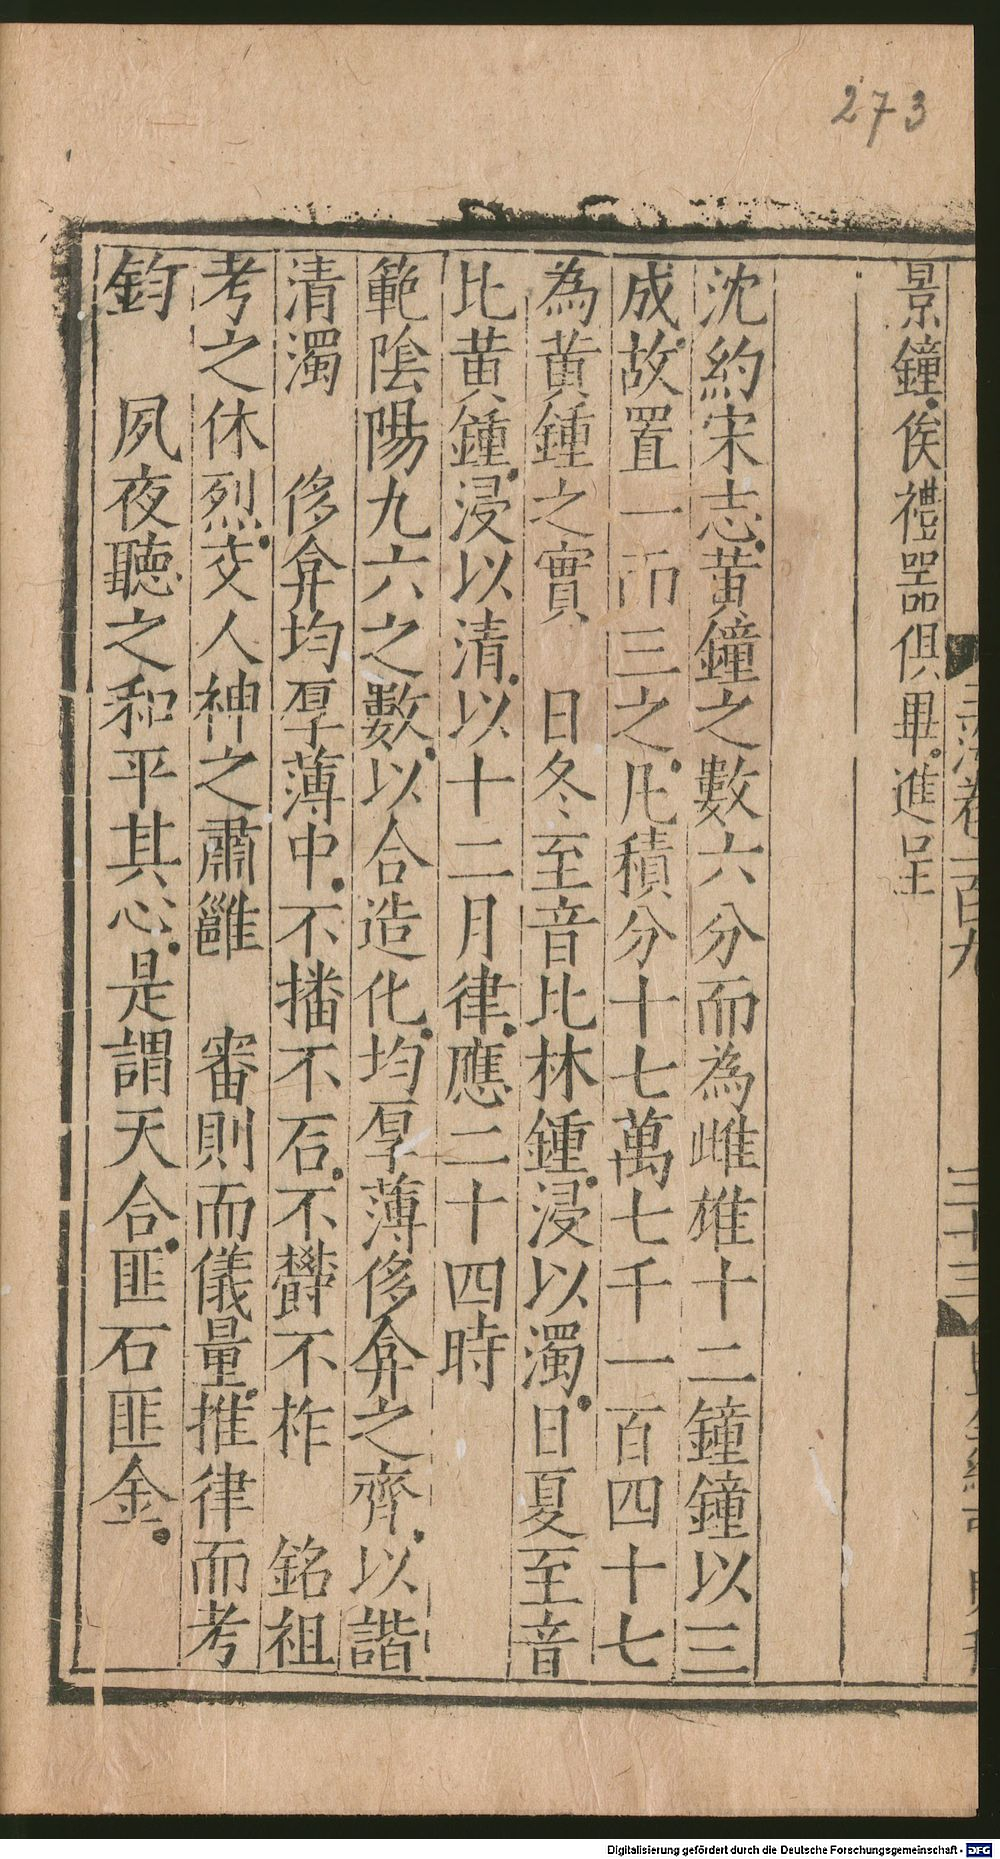 273
玉海卷一百九
三十三
景鐘俟禮器俱畢進呈
沈約宋志黃鐘之數六分而為雌雄十二鐘鐘以三
成故置一而三之凡積分十七萬七千一百四十七
為黃鍾之實 日冬至音比林鍾浸以濁日夏至音
比黃鍾浸以清以十二月律應二十四時
範陰陽九六之數以合造化均厚薄侈弇之齊以諧
清濁 侈弇均厚薄中不播不石不鬱不柞 銘祖
考之休烈交人神之肅雝 審則而儀量推律而考
鈞 夙夜聽之和平其心是謂天合匪石匪金
Digitalisierung gefördert durch die Deutsche Forschungsgemeinschaft - DFG